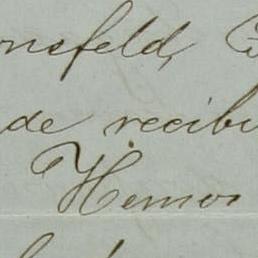 nsfeld,
de recibi
Hemos